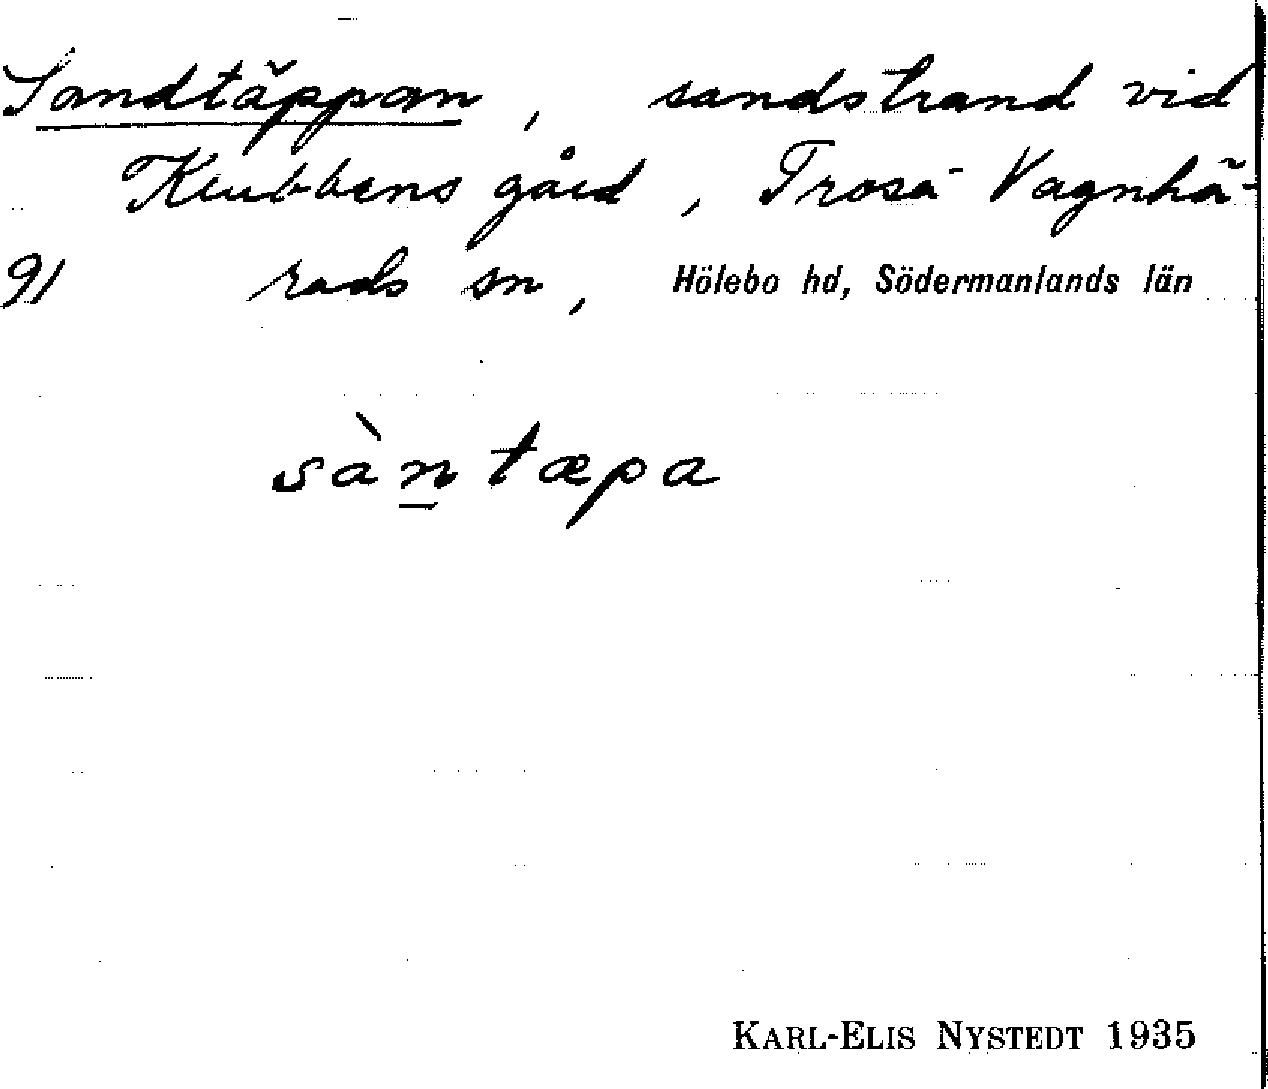 Sandtäppan, sandstrand vid
Klubbens gård, Trosa-Vagnhä-
91 rads sn, Hölebo hd, Södermanlands län
sàn̲tæpa
KARL-ELIS NYSTEDT 1935